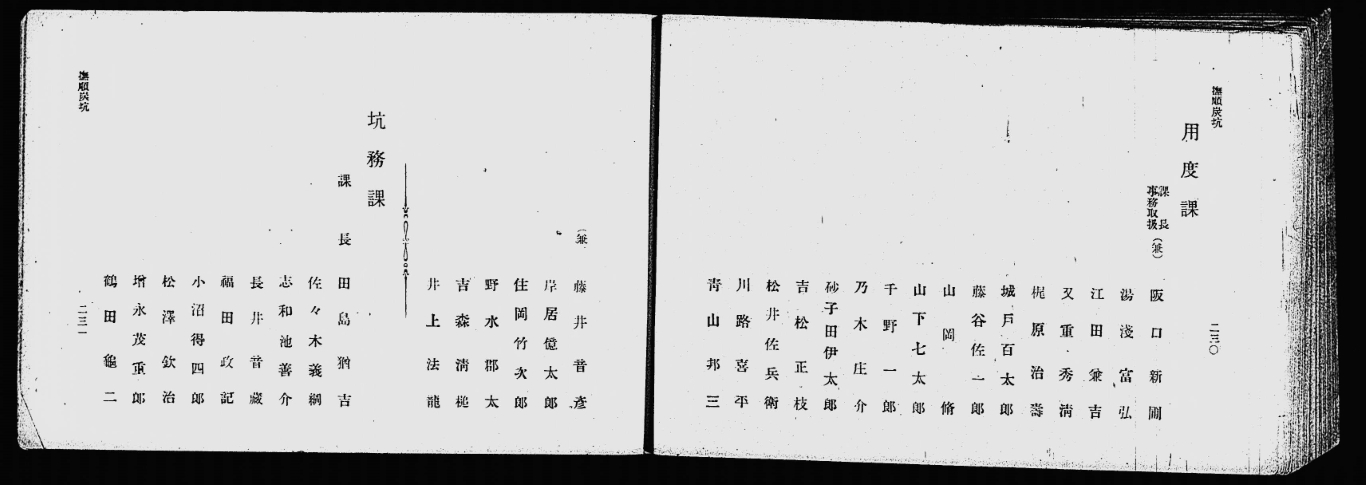 撫順炭坑
用度課
課長
事務取扱
(兼)
阪口新圃
湯淺富弘
江田兼吉
又重秀淸
梶原治壽
城戸百太郎
藤谷佐一郎
山岡脩
山下七太郎
千野一郎
乃木庄介
砂子田伊太郎
吉松正枝
松井佐兵衛
川路喜平
靑山邦三
二三〇
(兼)
藤井音彥
岸居億太郎
住岡竹次郎
野水郡太
吉森淸槌
井上法龍
坑務課
課長
田島猶吉
佐々木義綱
志和池善介
長井音藏
福田政記
小沼得四郎
松澤欽治
增永茂重郎
鶴田龜二
撫順炭坑
二三一